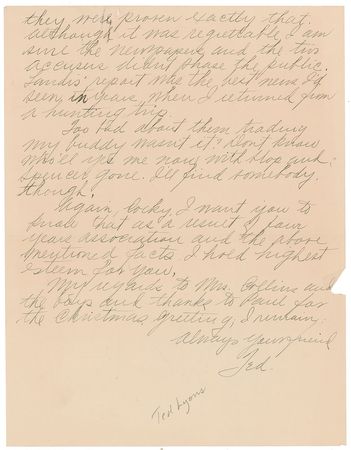 they were proven exactly that.
Although it was regrettable, I am
sure the newspapers and the two
accusers didn't phase the public.
Landis' report was the best news I'd
seen in years when I returned from
a hunting trip.
Too bad about them trading
my buddy wasn't it? Don't know
who'll use me now with Slop and
Spencer gone. I'll find somebody
though.
Again, Cocky, I want you to
know that as a result of our
years association and the above
mentioned facts I hold highest
esteem for you.
My regards to Mrs. Collins and
the boys and thanks to Paul for
the Christmas greeting, I remain,
Always your friend
Ted.
Ted Lyons